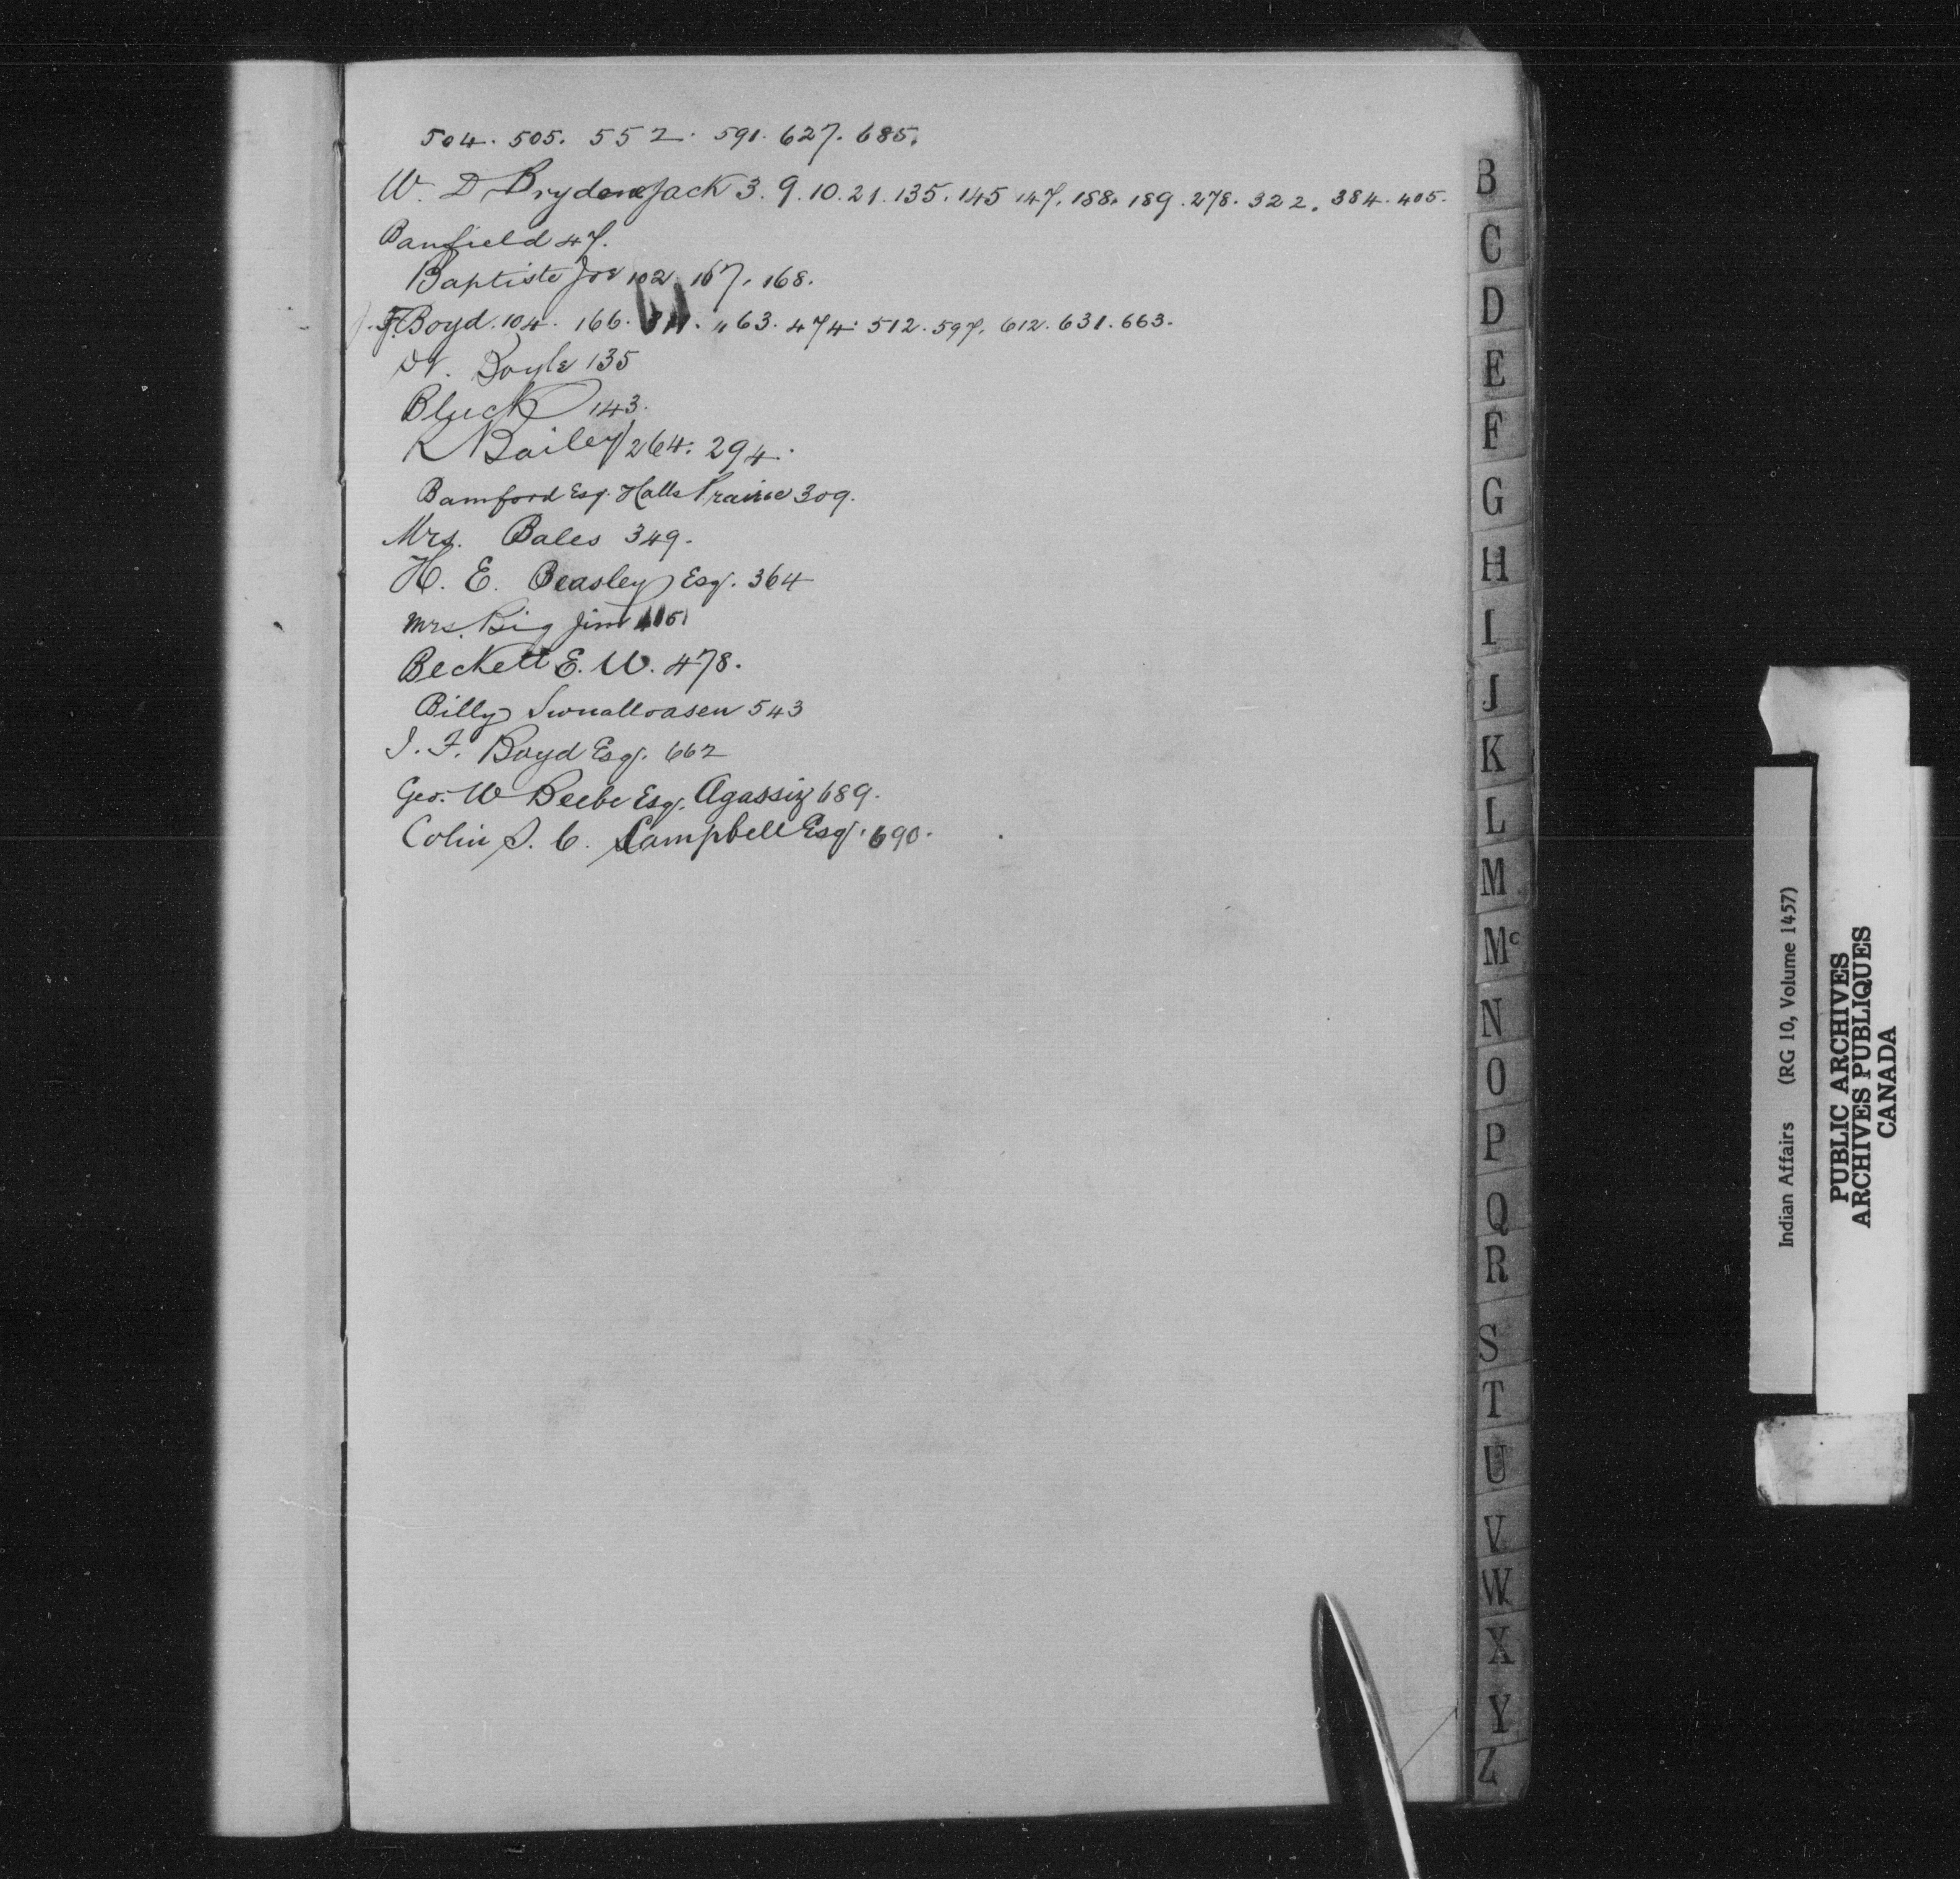 504. 505. 552. 591. 627. 685.
W. D Brydone Jack 3. 9. 10. 21. 135. 145 147. 188. 189. 278. 322. 384. 405.
Banfield 47.
Baptiste Joe 102. 167. 168.
J. F. Boyd. 104. 166. 463. 474. 512. 597. 612. 631. 663.
Dr. Boyle 135
Bluck 143.
Bailey 264. 294.
Bamford Esq. Halls Prairie 309.
Mrs. Bales 349.
H. E. Beasley Esq. 364
Mrs. Big Jim
Beckett E. W. 478.
Billy 543
J. F. Boyd Esq. 662
Geo. W Beebe Esq. Agassiz 689.
Colin S. C. Campbell Esq. 690.
B
C
D
E
F
G
H
I
J
K
L
M
Mc
N
O
P
Q
R
S
T
U
V
W
X
Y
Z
Indian Affairs (RG 10, Volume 1457)
PUBLIC ARCHIVES
ARCHIVES PUBLIQUES
CANADA